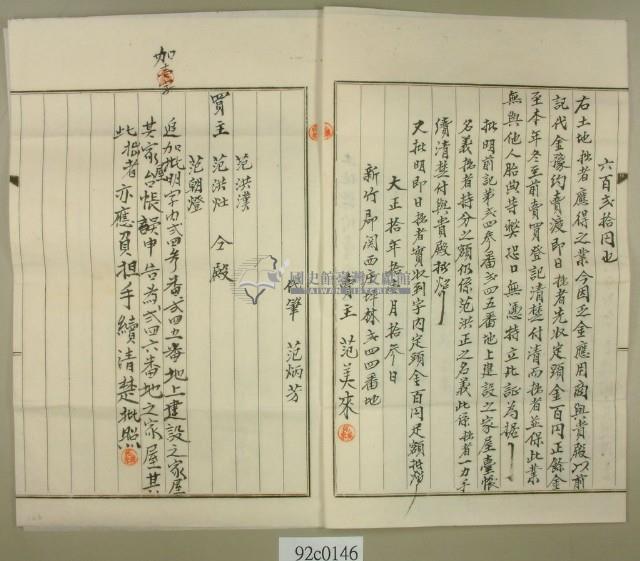 六百弍拾円也
右土地拙者應得之業今因乏金應用商與貴殿以前
記代金豫約賣渡即日拙者先收定頭金百円正餘金
至本年冬至前賣買登記清楚付清而拙者並保此業
無與他人胎典等弊恐口無憑特立此証為據
批明前記第弍四参番弍四五番地上建設之家屋臺帳
名義拙者持分之額仍係范洪正之名義此係拙者一力手
續清楚付與貴殿批照
又批明即日拙者實收到字內定頭金百円足額批照
大正拾年 月拾参日
新竹郡関西庄 林弍四四番地
賣主 范美來
代筆 范炳芳
范洪漢
買主 范洪灶 仝殿
范朝燈
追加批明字内弍四参番弍四五番地上建設之家屋
其家屋台帳誤申告為弍四六番地之家屋其
此拙者亦應負担手續清楚批照
加壹字
國史館臺灣文獻館
TAIWAN HISTORICA
92c0146